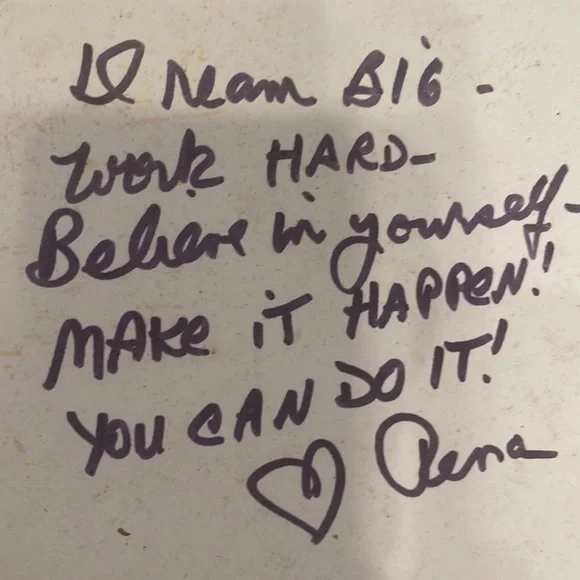 Dream BIG -
Work HARD-
Believe in yourself-
MAKE iT HAPPEN!
YOU CAN DO IT!
♡ Rena